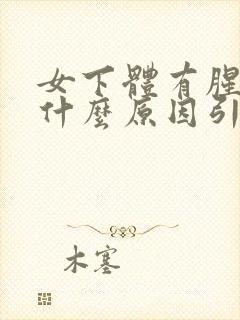 女下體有腥
什麼原因引
木塞